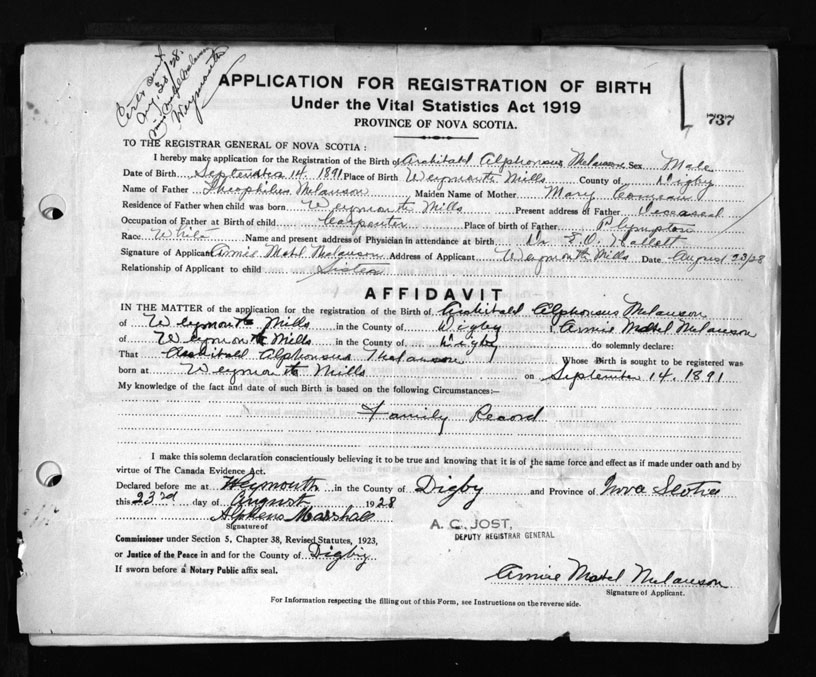 Cert sent
Aug. 30/28.
Weymouth
APPLICATION FOR REGISTRATION OF BIRTH
Under the Vital Statistics Act 1919
PROVINCE OF NOVA SCOTIA.
737
TO THE REGISTRAR GENERAL OF NOVA SCOTIA :
I hereby make application for the Registration of the Birth of Archibald Alphonsus Melanson Sex Male
Date of Birth September 14. 1891 Place of Birth Weymouth Mills County of Digby
Name of Father Theophilus Melanson Maiden Name of Mother Mary Comeau
Residence of Father when child was born Weymouth Mills Present address of Father Deceased
Occupation of Father at Birth of child Carpenter Place of birth of Father Plympton
Race White Name and present address of Physician in attendance at birth Dr E.O. Hallett
Signature of Applicant Annie Mabel Melanson Address of Applicant Weymouth Mills Date August 23/28
Relationship of Applicant to child Sister
AFFIDAVIT
IN THE MATTER of the application for the registration of the Birth of Archibald Alphonsus Melanson
of Weymouth Mills in the County of Digby Annie Mabel Melanson
of Weymouth Mills in the County of Digby do solemnly declare:
That Archibald Alphonsus Melanson Whose Birth is sought to be registered was
born at Weymouth Mills on September 14. 1891
My knowledge of the fact and date of such Birth is based on the following Circumstances:—
Family Record
I make this solemn declaration conscientiously believing it to be true and knowing that it is of the same force and effect as if made under oath and by
virtue of The Canada Evidence Act.
Declared before me at Weymouth in the County of Digby and Province of Nova Scotia
this 23rd day of August 1928
Alpheus Marshall
Signature of
A. C. JOST,
DEPUTY REGISTRAR GENERAL
Commissioner under Section 5, Chapter 38, Revised Statutes, 1923,
or Justice of the Peace in and for the County of Digby
If sworn before a Notary Public affix seal.
Annie Mabel Melanson
Signature of Applicant.
For Information respecting the filling out of this Form, see Instructions on the reverse side.